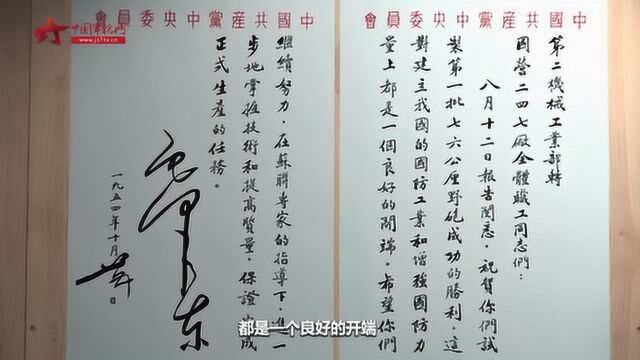 中国军视网
www.js7tv.cn
中國共產黨中央委員會
第二機械工業部轉
國營二四七廠全體職工同志們：
八月十二日報告閱悉，祝賀你們試
製第一批七六公厘野砲成功的勝利，這
對建立我國的國防工業和增強國防力
量上都是一個良好的開端。希望你們
中國共產黨中央委員會
繼續努力，在蘇聯專家的指導下，進一
步地掌握技術和提高質量，保證完成
正式生產的任務。
毛澤東
一九五四年十月 日
都是一个良好的开端